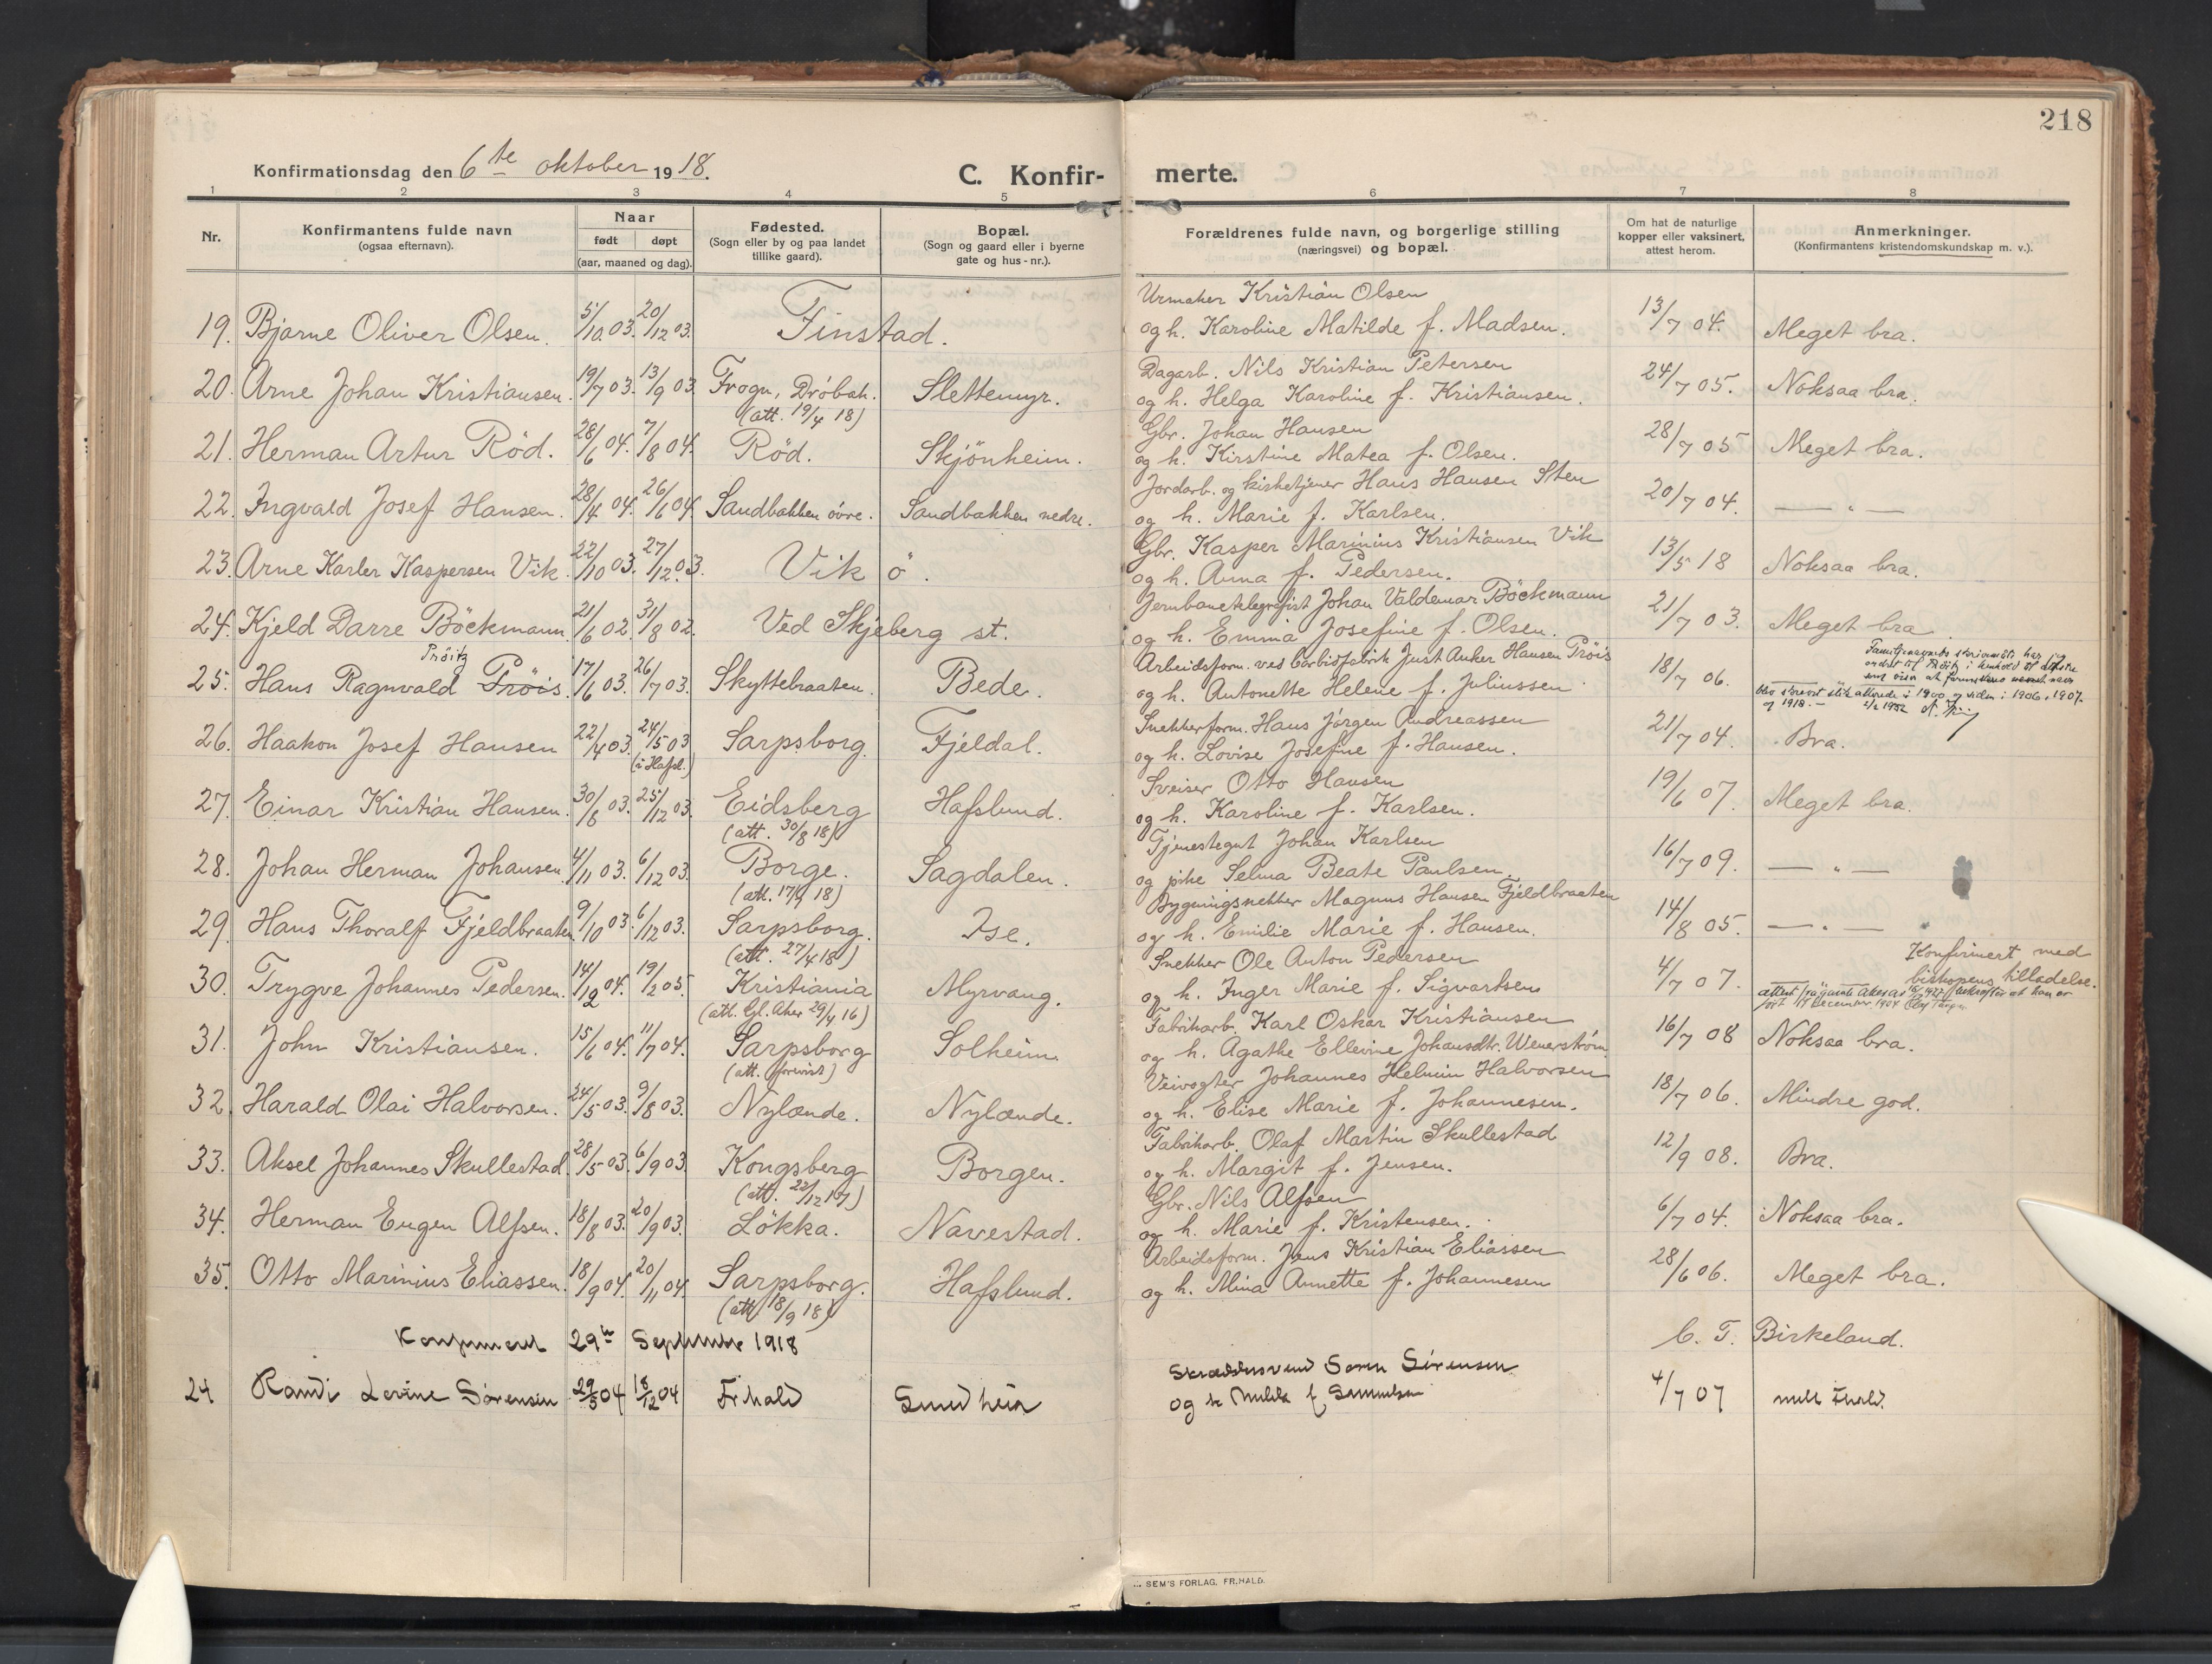 218
Konfirmationsdag den 6te oktober 1918.
C. Konfir-
merte.
1 2 3 4 5 6 7 8
Nr.
Konfirmantens fulde navn
(ogsaa efternavn).
Naar
født døpt
(aar, maaned og dag).
Fødested.
(Sogn eller by og paa landet
tillike gaard).
Bopæl.
(Sogn og gaard eller i byerne
gate og hus-nr.).
Forældrenes fulde navn, og borgerlige stilling
(næringsvei) og bopæl.
Om hat de naturlige
kopper eller vaksinert,
attest herom.
Anmerkninger.
(Konfirmantens kristendomskundskap m. v.).
Urmaker Kristian Olsen
19. Bjarne Oliver Olsen. 5/10 03. 20/12 03. Finstad. og h. Karoline Matilde f. Madsen. 13/7 04. Meget bra.
Dagarb. Nils Kristian Petersen
20. Arne Johan Kristiansen. 19/7 03. 13/9 03. Frogn, Dröbak. Slettemyr. og h. Helga Karoline f. Kristiansen. 24/7 05. Noksaa bra.
(att. 19/4 18)
Gbr. Johan Hansen
21. Herman Artur Röd. 28/6 04. 7/8 04. Röd. Skjönheim. og h. Kirstine Matea f. Olsen. 28/7 05 Meget bra.
Jordarb. og kirketjener Hans Hansen Sten
22. Ingvald Josef Hansen. 28/4 04. 26/6 04. Sandbakken övre. Sandbakken nedre. og h. Marie f. Karlsen. 20/7 04. — " —
Gbr. Kasper Marinius Kristiansen Vik
23. Arne Karler Kaspersen Vik. 22/10 03. 27/12 03. Vik ö. og h. Anna f. Pedersen. 13/5 18 Noksaa bra.
Jernbanetelegrafist Johan Valdemar Böckmann
24. Kjeld Darre Böckmann. 21/6 02. 31/8 02. Ved Skjeberg st. og h. Emma Josefine f. Olsen. 21/7 03. Meget bra.
Pröitz
Arbeidsform. ved Carbidfabrik Just Anker Hansen Pröis
25. Hans Ragnvald Pröis. 17/6 03. 26/7 03. Skyttebraaten. Bede. og h. Antonette Helene f. Juliussen 18/7 06.
Familjenavnets skrivemåte har jeg
endret til Pröitz i henhold til
som viser at
blev skrevet slik allerede i 1900 og siden i 1906, 1907
og 1918. — 1932
Snekkerform. Hans Jørgen Andreassen
26. Haakon Josef Hansen 22/4 03. 24/5 03 Sarpsborg. Fjeldal. og h. Lovise Josefine f. Hansen. 21/7 04. Bra.
(i Hafsl.)
Sveiser Otto Hansen
27. Einar Kristian Hansen. 30/8 03. 25/12 03. Eidsberg Hafslund. og h. Karoline f. Karlsen. 19/6 07. Meget bra.
(att. 30/8 18)
Tjenestegut Johan Karlsen
28. Johan Herman Johansen 4/11 03. 6/12 03. Borge. Sagdalen. og pike Selma Beate Paulsen. 16/7 09. — " —
(att. 17/9 18)
Bygningsnekker Magnus Hansen Fjeldbraaten
29. Hans Thoralf Fjeldbraaten 9/10 03. 6/12 03. Sarpsborg. Ise. og h. Emilie Marie f. Hansen. 14/8 05. — " —
(att. 27/4 18)
Snekker Ole Anton Pedersen
30. Trygve Johannes Pedersen. 14/12 04. 19/2 05. Kristiania Myrvang. og h. Inger Marie f. Sigvartsen 4/7 07. Konfirmert med
biskopens tilladelse.
(att. Gl. Aker 29/4 16)
attest fra gamle Aker av bekrefter at han er
født 14 December 1904
Fabrikarb. Karl Oskar Kristiansen
31. John Kristiansen. 15/6 04. 11/7 04. Sarpsborg Solheim. og h. Agathe Ellevine Johansdtr. Wenerström 16/7 08 Noksaa bra.
(att. forevist)
Veivogter Johannes Helmin Halvorsen
32. Harald Olai Halvorsen. 24/5 03. 9/8 03. Nylænde. Nylænde. og h. Elise Marie f. Johannesen. 18/7 06. Mindre god.
Fabrikarb. Olaf Martin Skullestad
33. Aksel Johannes Skullestad. 28/5 03. 6/9 03. Kongsberg Borgen. og h. Margit f. Jensen. 12/9 08. Bra.
(att. 22/12 17)
Gbr. Nils Alfsen
34. Herman Eugen Alfsen. 18/8 03. 20/9 03. Lökka. Navestad. og h. Marie f. Kristensen. 6/7 04. Noksaa bra.
Arbeidsform. Jens Kristian Eliassen
35. Otto Marinius Eliassen. 18/9 04. 20/11 04. Sarpsborg. Hafslund. og h. Mina Annette f. Johannesen 28/6 06. Meget bra.
(att. 18/9 18)
C. T. Birkeland.
Konfirmeret 29de September 1918
Skræddersvend Søren Sörensen
24 Randi Lovine Sörensen 29/5 04 18/12 04 Frhald og h f. Samuelsen 4/7 07
SEM'S FORLAG, FR.HALD.